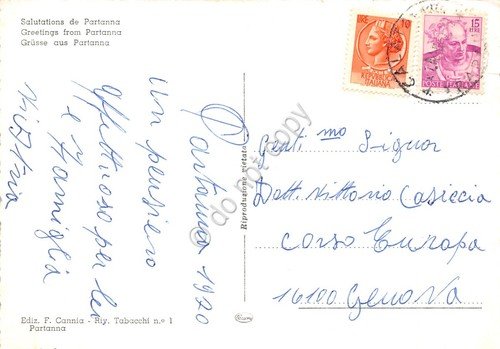 Salutations de Partanna
Greetings from Partanna
Grüsse aus Partanna
Partanna 1970
Un pensiero
affettuoso per lei
e famiglia
Riproduzione vietata
Ediz. F. Cannia - Riv. Tabacchi n.º 1
Partanna
LIRE 10
15
LIRE
POSTE ITALIANE
Gent.mo Signor
Dott. Vittorio Casiccia
Corso Europa
16100 Genova
do not copy